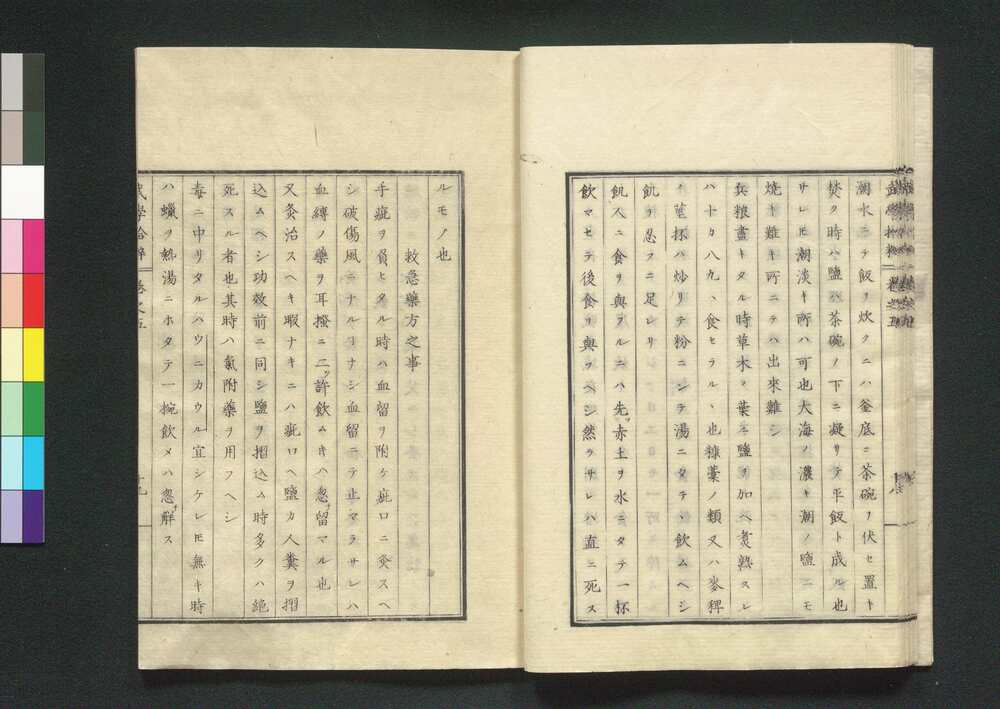 潮水ニテ飯ヲ炊クニハ釜底ニ茶碗ヲ伏セ置キ
焚ク時ハ塩ハ茶碗ノ下ニ凝リテ平飯ト成ル也
サレ𪜈潮淡キ所ハ可也大海ノ濃キ潮ノ鹽ニモ
焼キ難キ所ニテハ出來難シ
兵粮盡キタル時草木ノ葉ニ鹽ヲ加ヘ煮熟スレ
ハ十カ八九ハ食セラルヽ也糠藁ノ類又ハ麥稗
ノ莖抔ハ炒リテ粉ニシテ湯ニタテヽ飲ムヘシ
飢ヲ忍フニ足レリ
飢人ニ食ヲ與ヲルニハ先ツ赤土ヲ水ニタテ一杯
飲マセテ後食ヲ與フヘシ然ラサレハ直ニ死ス
ルモノ也
救急藥方之事
手疵ヲ負ヒタル時ハ血留ヲ附ケ疵口ニ灸スヘ
シ破傷風ニナルヿナシ血留ニテ止マラサレハ
血縛ノ藥ヲ耳掻ニ二ツ許飲ムキハ忽チ留マル也
又灸治スヘキ暇ナキニハ疵口ヘ鹽カ人糞ヲ摺
込ムヘシ功效前ニ同シ鹽ヲ摺込ム時多クハ絶
死スル者也其時ハ氣附藥ヲ用フヘシ
毒ニ中リタルハウニカウル宜シケレ𪜈無キ時
ハ蠟ヲ熱湯ニホタテ一椀飲メハ忽チ解ス
武學拾粹 卷之五 十九